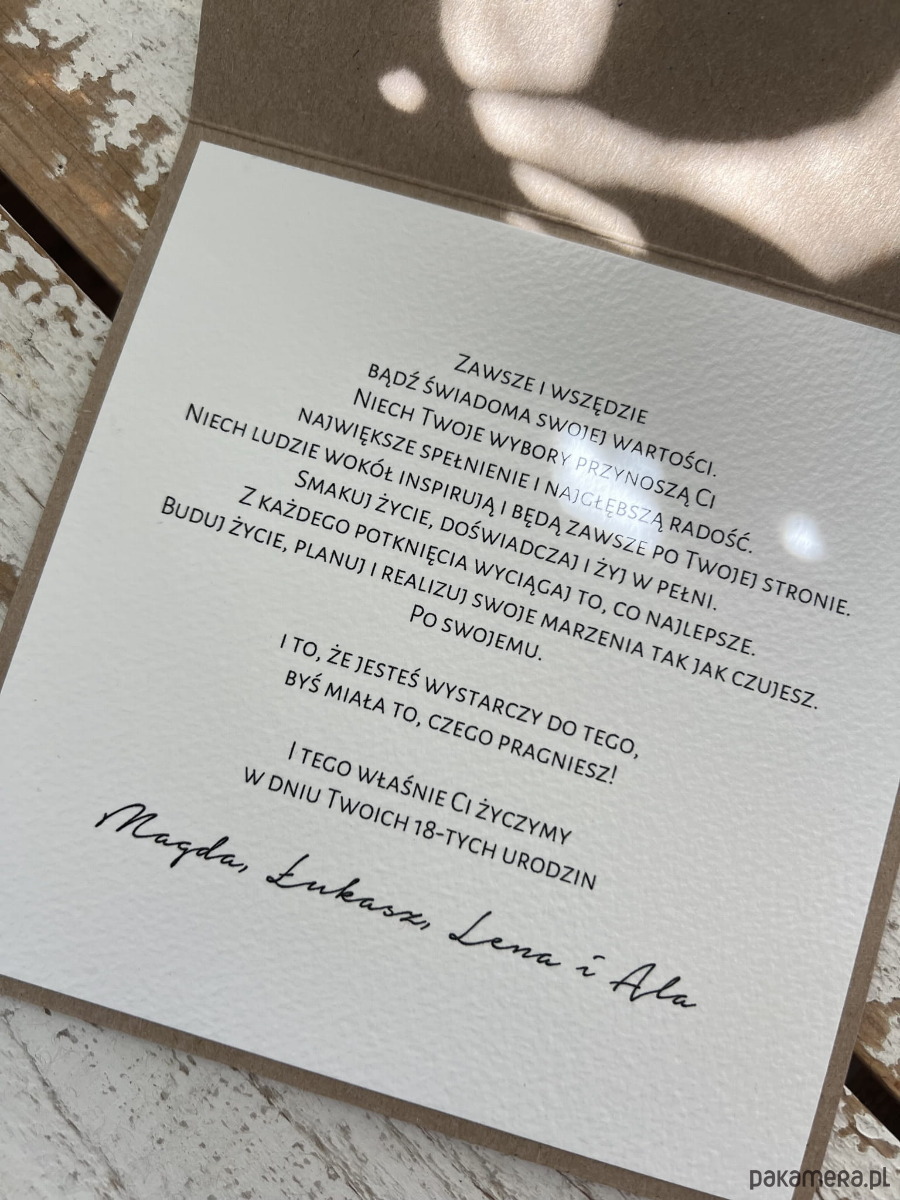 Zawsze i wszędzie
bądź świadoma swojej wartości.
Niech Twoje wybory przynoszą Ci
największe spełnienie i najgłębszą radość.
Niech ludzie wokół inspirują i będą zawsze po Twojej stronie.
Smakuj życie, doświadczaj i żyj w pełni.
Z każdego potknięcia wyciągaj to, co najlepsze.
Buduj życie, planuj i realizuj swoje marzenia tak jak czujesz.
Po swojemu.
i to, że jesteś wystarczy do tego,
byś miała to, czego pragniesz!
I tego właśnie Ci życzymy
w dniu Twoich 18-tych urodzin
Magda, Łukasz, Lena i Ala
pakamera.pl